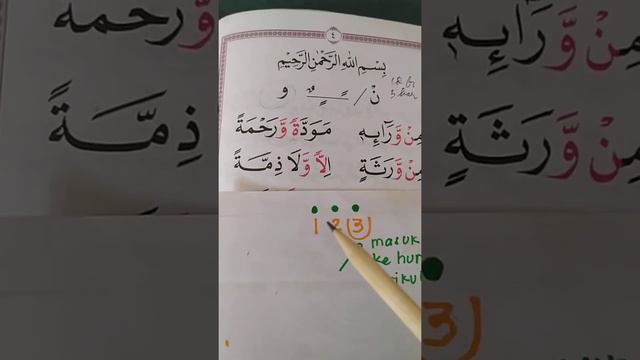 ٤
بِسْمِ اللهِ الرَّحْمٰنِ الرَّحِيْمِ
نْ / ــًــ ــٍــ ــٌــ و
مِنْ وَّرَآئِهٖ مَوَدَّةً وَّرَحْمَةً
مِنْ وَّرَثَةِ اِلًّا وَّلَا ذِمَّةً
1 2 (3)
masuk
ke hur